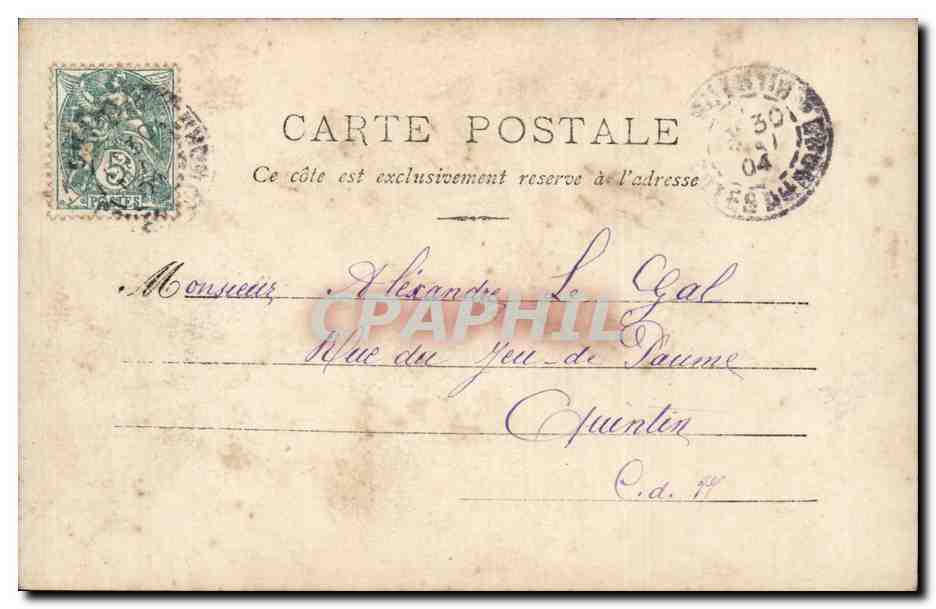 CARTE POSTALE
Ce côte est exclusivement reserve à l'adresse
5
QUINTIN
30
04
Monsieur Aléxandre Le Gal
CPAPHIL
Rue du Jeu-de Paume
Quintin
C. d. N